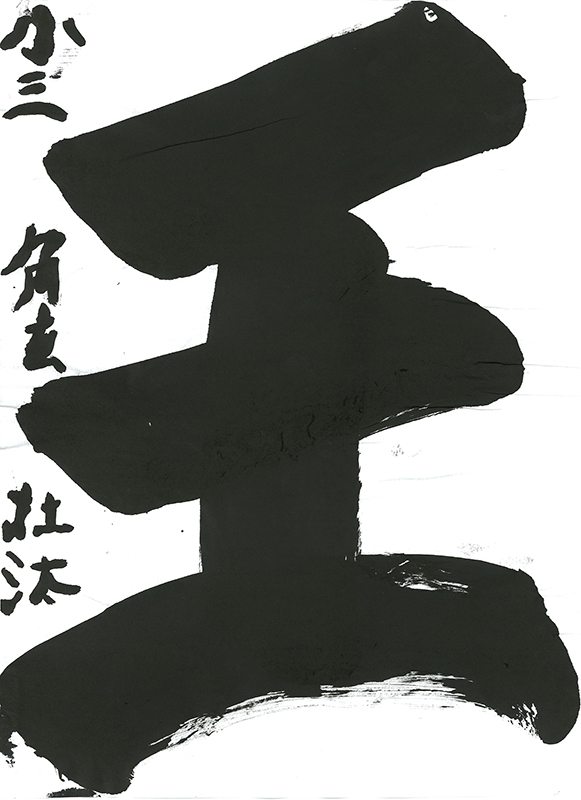 王
小三 角去 壮汰